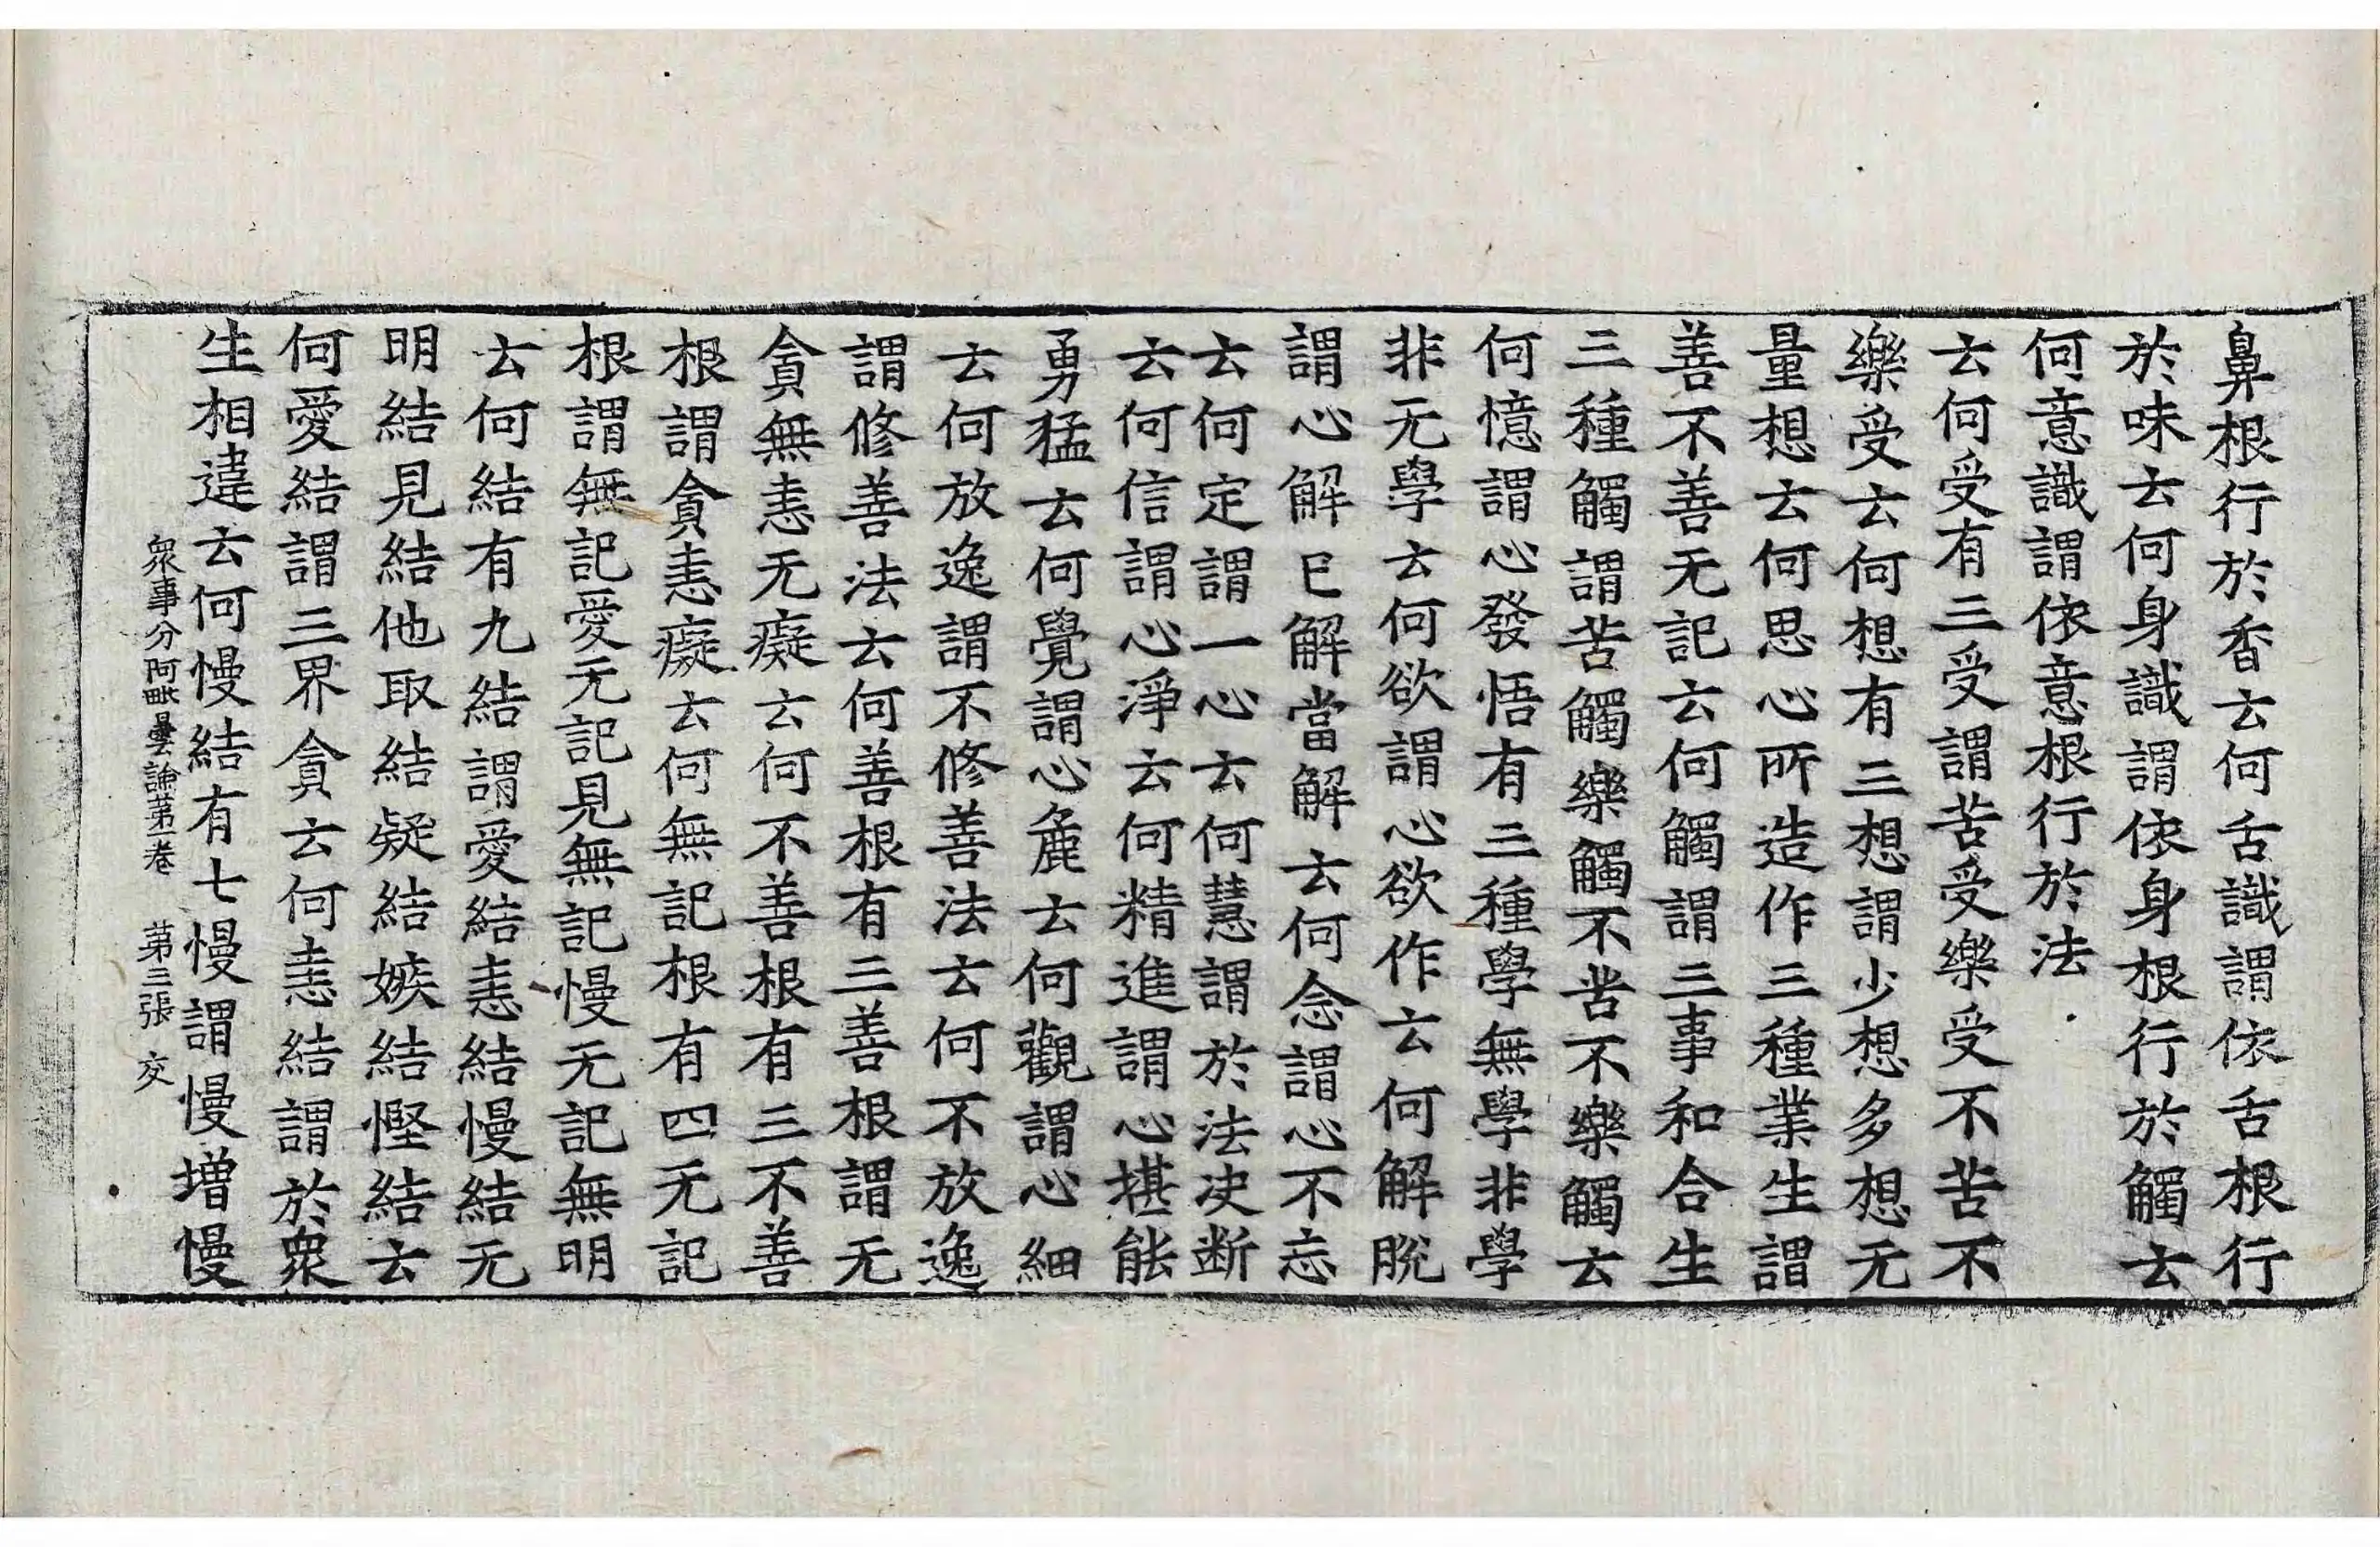 鼻根行於香云何舌識謂依舌根行
於味云何身識謂依身根行於觸云
何意識謂依意根行於法
云何受有三受謂苦受樂受不苦不
樂受云何想有三想謂少想多想无
量想云何思心所造作三種業生謂
善不善无記云何觸謂三事和合生
三種觸謂苦觸樂觸不苦不樂觸云
何憶謂心發悟有三種學無學非學
非无學云何欲謂心欲作云何解脫
謂心解已解當解云何念謂心不忘
云何定謂一心云何慧謂於法决断
云何信謂心淨云何精進謂心堪能
勇猛云何覺謂心麁云何觀謂心細
云何放逸謂不修善法云何不放逸
謂修善法云何善根有三善根謂无
貪無恚无癡云何不善根有三不善
根謂貪恚癡云何無記根有四无記
根謂無記愛无記見無記慢无記無明
云何結有九結謂愛結恚結慢結无
明結見結他取結疑結嫉結慳結云
何愛結謂三界貪云何恚結謂於衆
生相違云何慢結有七慢謂慢增慢
衆事分阿毗曇論苐一卷 苐三張 交